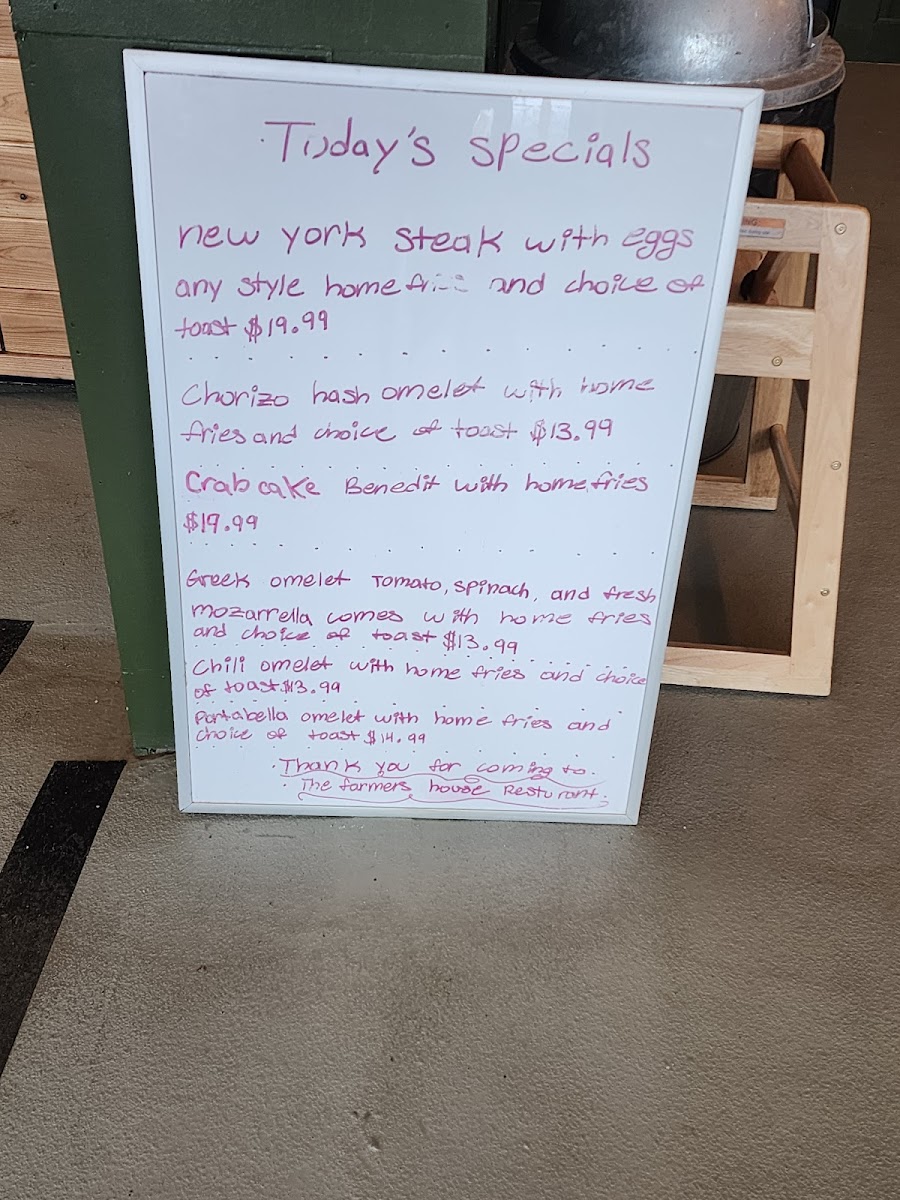 Today's specials
new york steak with eggs
any style home fries and choice of
toast $19.99
Chorizo hash omelet with home
fries and choice of toast $13.99
Crab cake Benedit with home fries
$19.99
Greek omelet Tomato, spinach, and fresh
mozarrella comes with home fries
and choice of toast $13.99
Chili omelet with home fries and choice
of toast $13.99
Portabella omelet with home fries and
choice of toast $14.99
Thank you for coming to.
The farmers house Resturant.